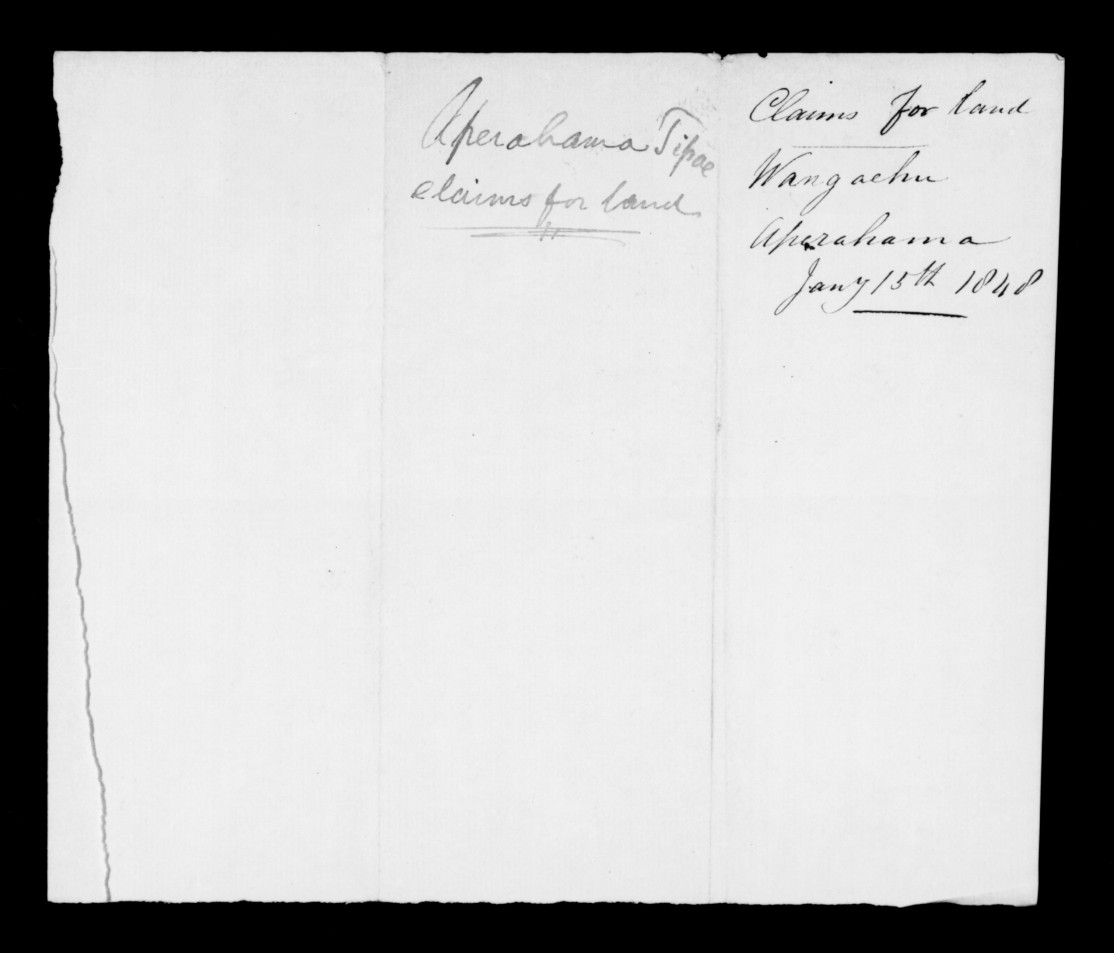 Aperahama Tipae
claims for land
Claims for land
Wangaehu
Aperahama
Jany 15th 1848